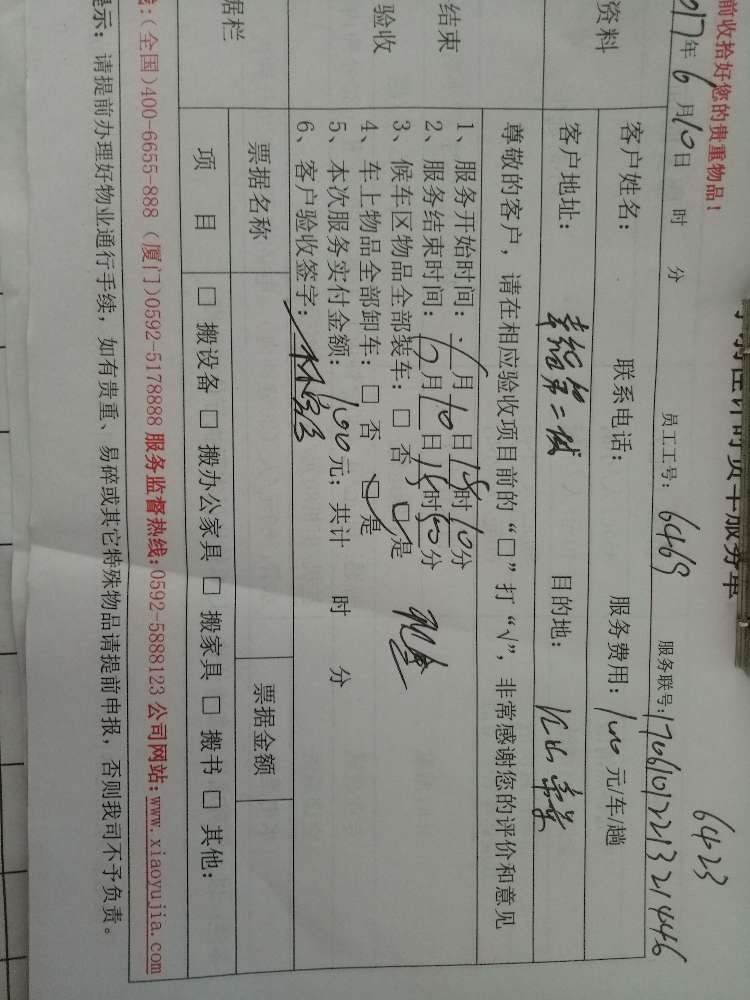 前收拾好您的贵重物品！
6423
017年6月10日 时 分 员工工号：6469 服务联号：170610122132 1446
资料
客户姓名： 联系电话： 服务费用：100元/车/趟
客户地址：幸福第二城 目的地：
尊敬的客户，请在相应验收项目前的“□”打“√”，非常感谢您的评价和意见
结束
验收
1、服务开始时间：6月10日15时10分
2、服务结束时间：6月10日15时50分
3、候车区物品全部装车：□否 □是 现金
4、车上物品全部卸车：□否 □是
5、本次服务实付金额：100元；共计 时 分
6、客户验收签字：
据栏
票据名称 票据金额
项 目 □搬设备 □搬办公家具 □搬家具 □搬书 □其他：
：(全国)400-6655-888 (厦门)0592-5178888 服务监督热线：0592-5888123 公司网站：www.xiaoyujia.com
提示：请提前办理好物业通行手续，如有贵重、易碎或其它特殊物品请提前申报，否则我司不予负责。